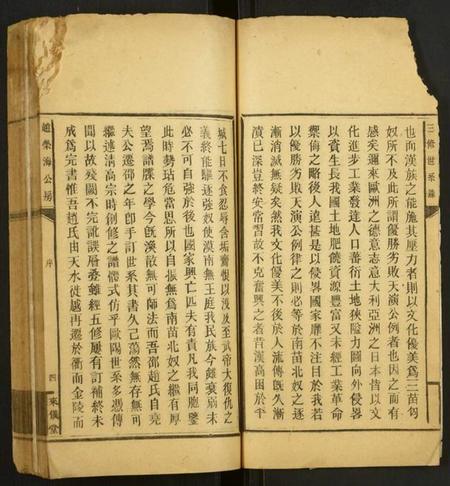 三修世系譜
也而漢族之能施其壓力者則以文化優美爲三苗匈
奴所不及此所謂優勝劣敗天演公例者也因之而有
感矣邇來歐洲之德意志意大利亞洲之日本皆以文
化進步工業發達人口蕃衍土地狹隘力圖向外侵畧
以資生長我國土地肥饒資源豐富又未經工業革命
禦侮之略後人遠甚是以侵畧國家靡不注目於我
以優勝劣敗天演公例律之則必等於南苗北奴之逐
漸消滅無疑矣然我文化優美不後於人流傳旣久漸
漬已深豈終安常習故不克奮興之者昔漢高困於平
城七日不食忍辱含垢齎恨以沒及至武帝大復仇之
義終能驅逐強奴使漠南無王庭我民族今雖衰弱未
必不可自強於後也國家興亡匹夫有責凡我同胞鑒
此時勢玷危當思所以自振無爲南苗北奴之繼有厚
望焉譜牒之學今旣渙散無可師法而吾邵趙氏自堯
夫公遷邵之年卽手訂世系其書久已蕩然無存無可
繼述淸高宗時創修之譜體式仿乎歐陽世系多憑傳
聞以故殘闕不完訛誤層叠雖經五修屢有訂補終未
成爲完書惟吾趙氏由天水從越再遷於衢而金陵而
趙榮海公房
序
四
來儀堂